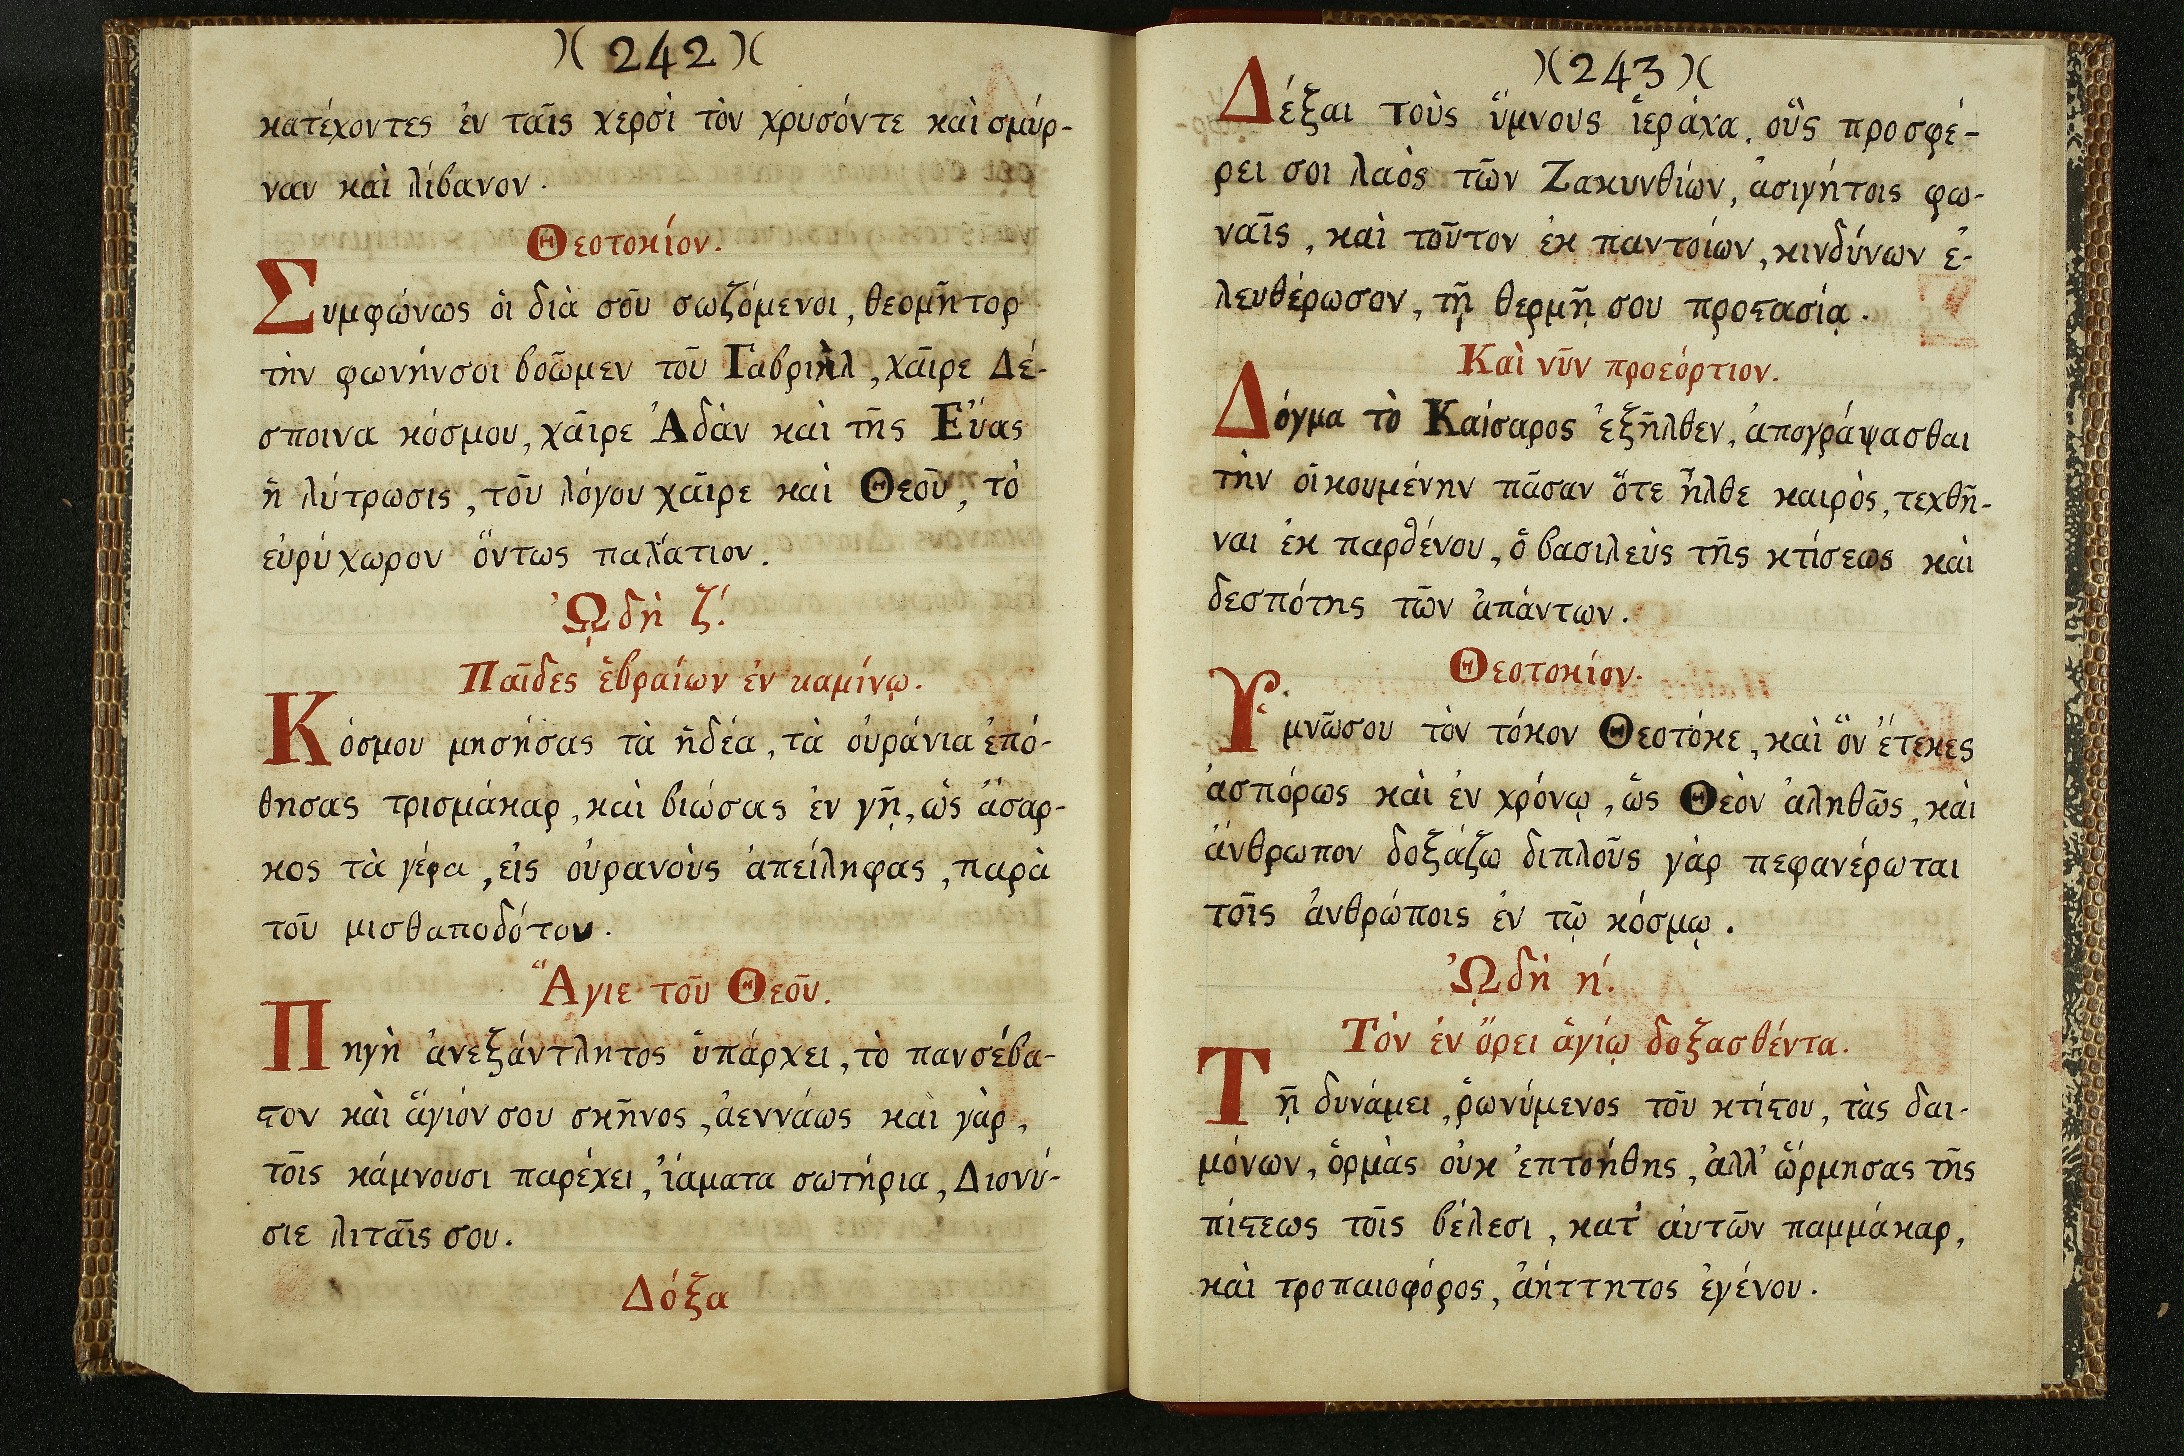 )( 242 )(
κατέχοντες ἐν ταῖς χερσὶ τὸν χρυσόντε καὶ σμύρ-
ναν καὶ λίβανον.
Θεοτοκίον.
Συμφώνως ὁι διὰ σοῦ σωζόμενοι, θεομῆτορ
τὴν φωνήνσοι βοῶμεν τοῦ Γαβριὴλ, χᾶιρε Δέ-
σποινα κόσμου, χᾶιρε Ἀδὰν καὶ τῆς Εὔας
ἡ λύτρωσις, τοῦ λόγου χᾶιρε καὶ Θεοῦ, τὸ
εὐρύχωρον ὄντως παλάτιον.
ᾨδὴ ζ΄.
Παῖδες ἑβραίων ἐν καμίνῳ.
Κόσμου μησήσας τὰ ἡδέα, τὰ οὐράνια ἐπό-
θησας τρισμάκαρ, καὶ βιώσας ἐν γῇ, ὡς ἄσαρ-
κος τὰ γέρα, εἰς οὐρανοὺς ἀπείληφας, παρὰ
τοῦ μισθαποδότου.
Ἅγιε τοῦ Θεοῦ.
Πηγὴ ἀνεξάντλητος ὑπάρχει, τὸ πανσέβα-
στον καὶ ἅγιόν σου σκῆνος, ἀεννάως καὶ γὰρ,
τοῖς κάμνουσι παρέχει, ἰάματα σωτήρια, Διονύ-
σιε λιταῖς σου.
Δόξα
)( 243 )(
Δέξαι τοὺς ὕμνους ἱεράχα. οὓς προσφέ-
ρει σοι λαὸς τῶν Ζακυνθίων, ἀσιγήτοις φω-
ναῖς, καὶ τοῦτον ἐκ παντοίων, κινδύνων ἐ-
λευθέρωσον, τῇ θερμῇ σου προϛασίᾳ.
Καὶ νῦν προεόρτιον.
Δόγμα τὸ Καίσαρος ἐξῆλθεν, ἀπογράψασθαι
τὴν οἰκουμένην πᾶσαν ὅτε ἦλθε καιρὸς, τεχθῆ-
ναι ἐκ παρθένου, ὁ βασιλεὺς τῆς κτίσεως καὶ
δεσπότης τῶν ἁπάντων.
Θεοτοκίον.
Ὑμνῶσου τὸν τόκον Θεοτόκε, καὶ ὃν ἔτεκες
ἀσπόρως καὶ ἐν χρόνῳ, ὡς Θεὸν ἀληθῶς, καὶ
ἄνθρωπον δοξάζω διπλοῦς γὰρ πεφανέρωται
τοῖς ἀνθρώποις ἐν τῷ κόσμῳ.
ᾨδὴ η΄.
Τὸν ἐν ὄρει ἁγίῳ δοξασθέντα.
Τῇ δυνάμει, ῥωνύμενος τοῦ κτίϛου, τὰς δαι-
μόνων, ὁρμὰς οὐκ ἐπτοήθης, ἀλλ' ὥρμησας τῆς
πίϛεως τοῖς βέλεσι, κατ' αὐτῶν παμμάκαρ,
καὶ τροπαιοφόρος, ἀήττητος ἐγένου.